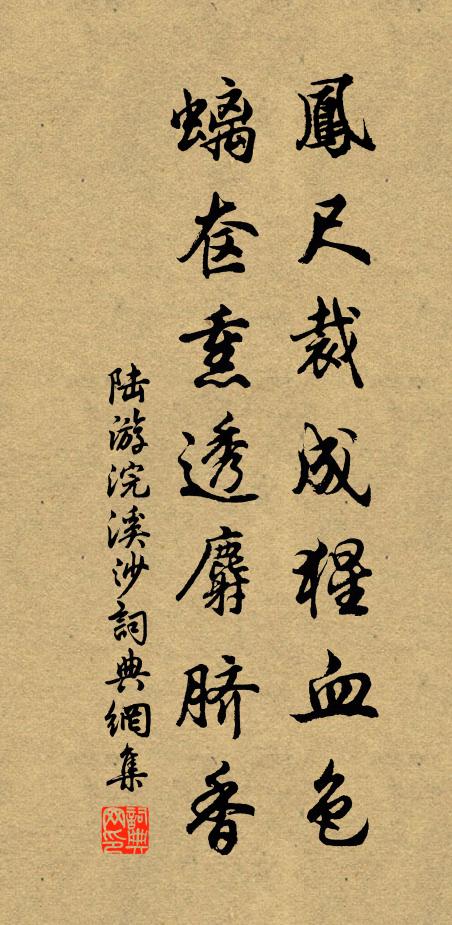 鳳尺裁成猩血色
螭奁熏透麝脐香
陆游浣溪沙詞典網集
詞典网印